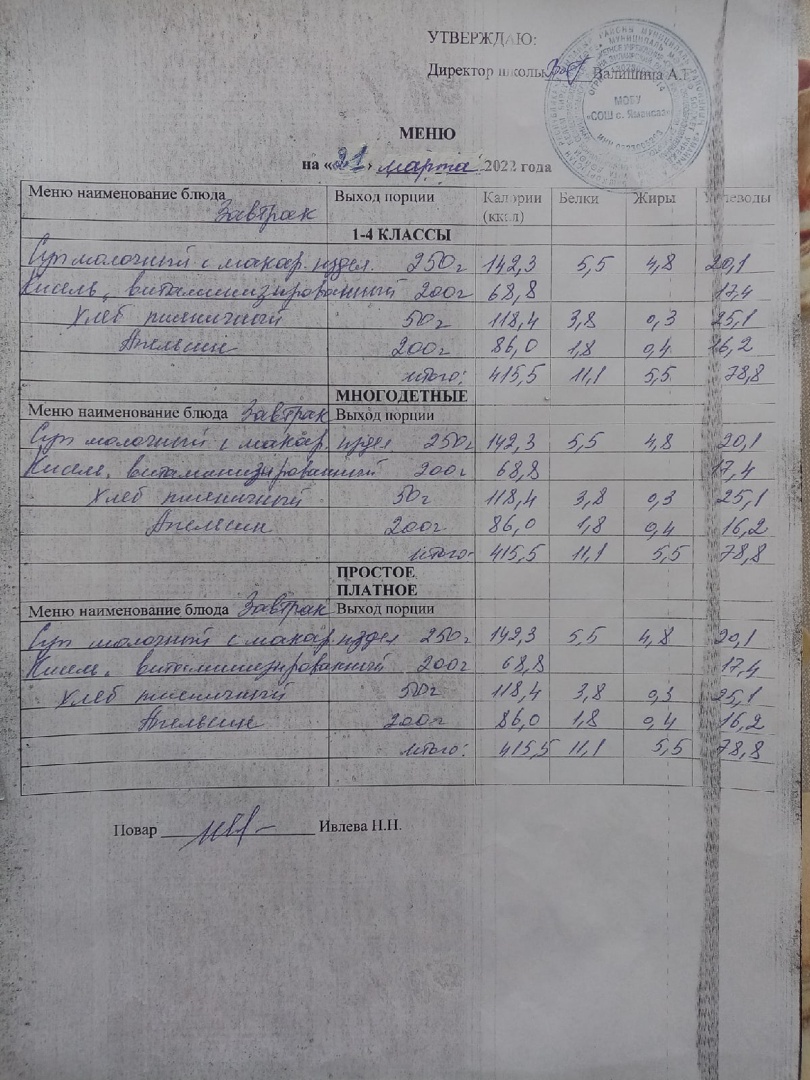 УТВЕРЖДАЮ:
Директор школы Валишина А.Г.
МОБУ
«СОШ с. Ямансаз»
МЕНЮ
на «21» марта 2022 года
Меню наименование блюда Завтрак Выход порции Калории (ккал) Белки Жиры Углеводы
1-4 КЛАССЫ
Суп молочный с макар. издел. 250г 142,3 5,5 4,8 20,1
Кисель витаминизированный 200г 68,8 17,4
Хлеб пшеничный 50г 118,4 3,8 0,3 25,1
Апельсин 200г 86,0 1,8 0,4 16,2
итого: 415,5 11,1 5,5 78,8
МНОГОДЕТНЫЕ
Меню наименование блюда Завтрак Выход порции
Суп молочный с макар. издел 250г 142,3 5,5 4,8 20,1
Кисель витаминизированный 200г 68,8 17,4
Хлеб пшеничный 50г 118,4 3,8 0,3 25,1
Апельсин 200г 86,0 1,8 0,4 16,2
итого: 415,5 11,1 5,5 78,8
ПРОСТОЕ
ПЛАТНОЕ
Меню наименование блюда Завтрак Выход порции
Суп молочный с макар. издел 250г 142,3 5,5 4,8 20,1
Кисель витаминизированный 200г 68,8 17,4
Хлеб пшеничный 50г 118,4 3,8 0,3 25,1
Апельсин 200г 86,0 1,8 0,4 16,2
итого: 415,5 11,1 5,5 78,8
Повар Ивлева Н.Н.